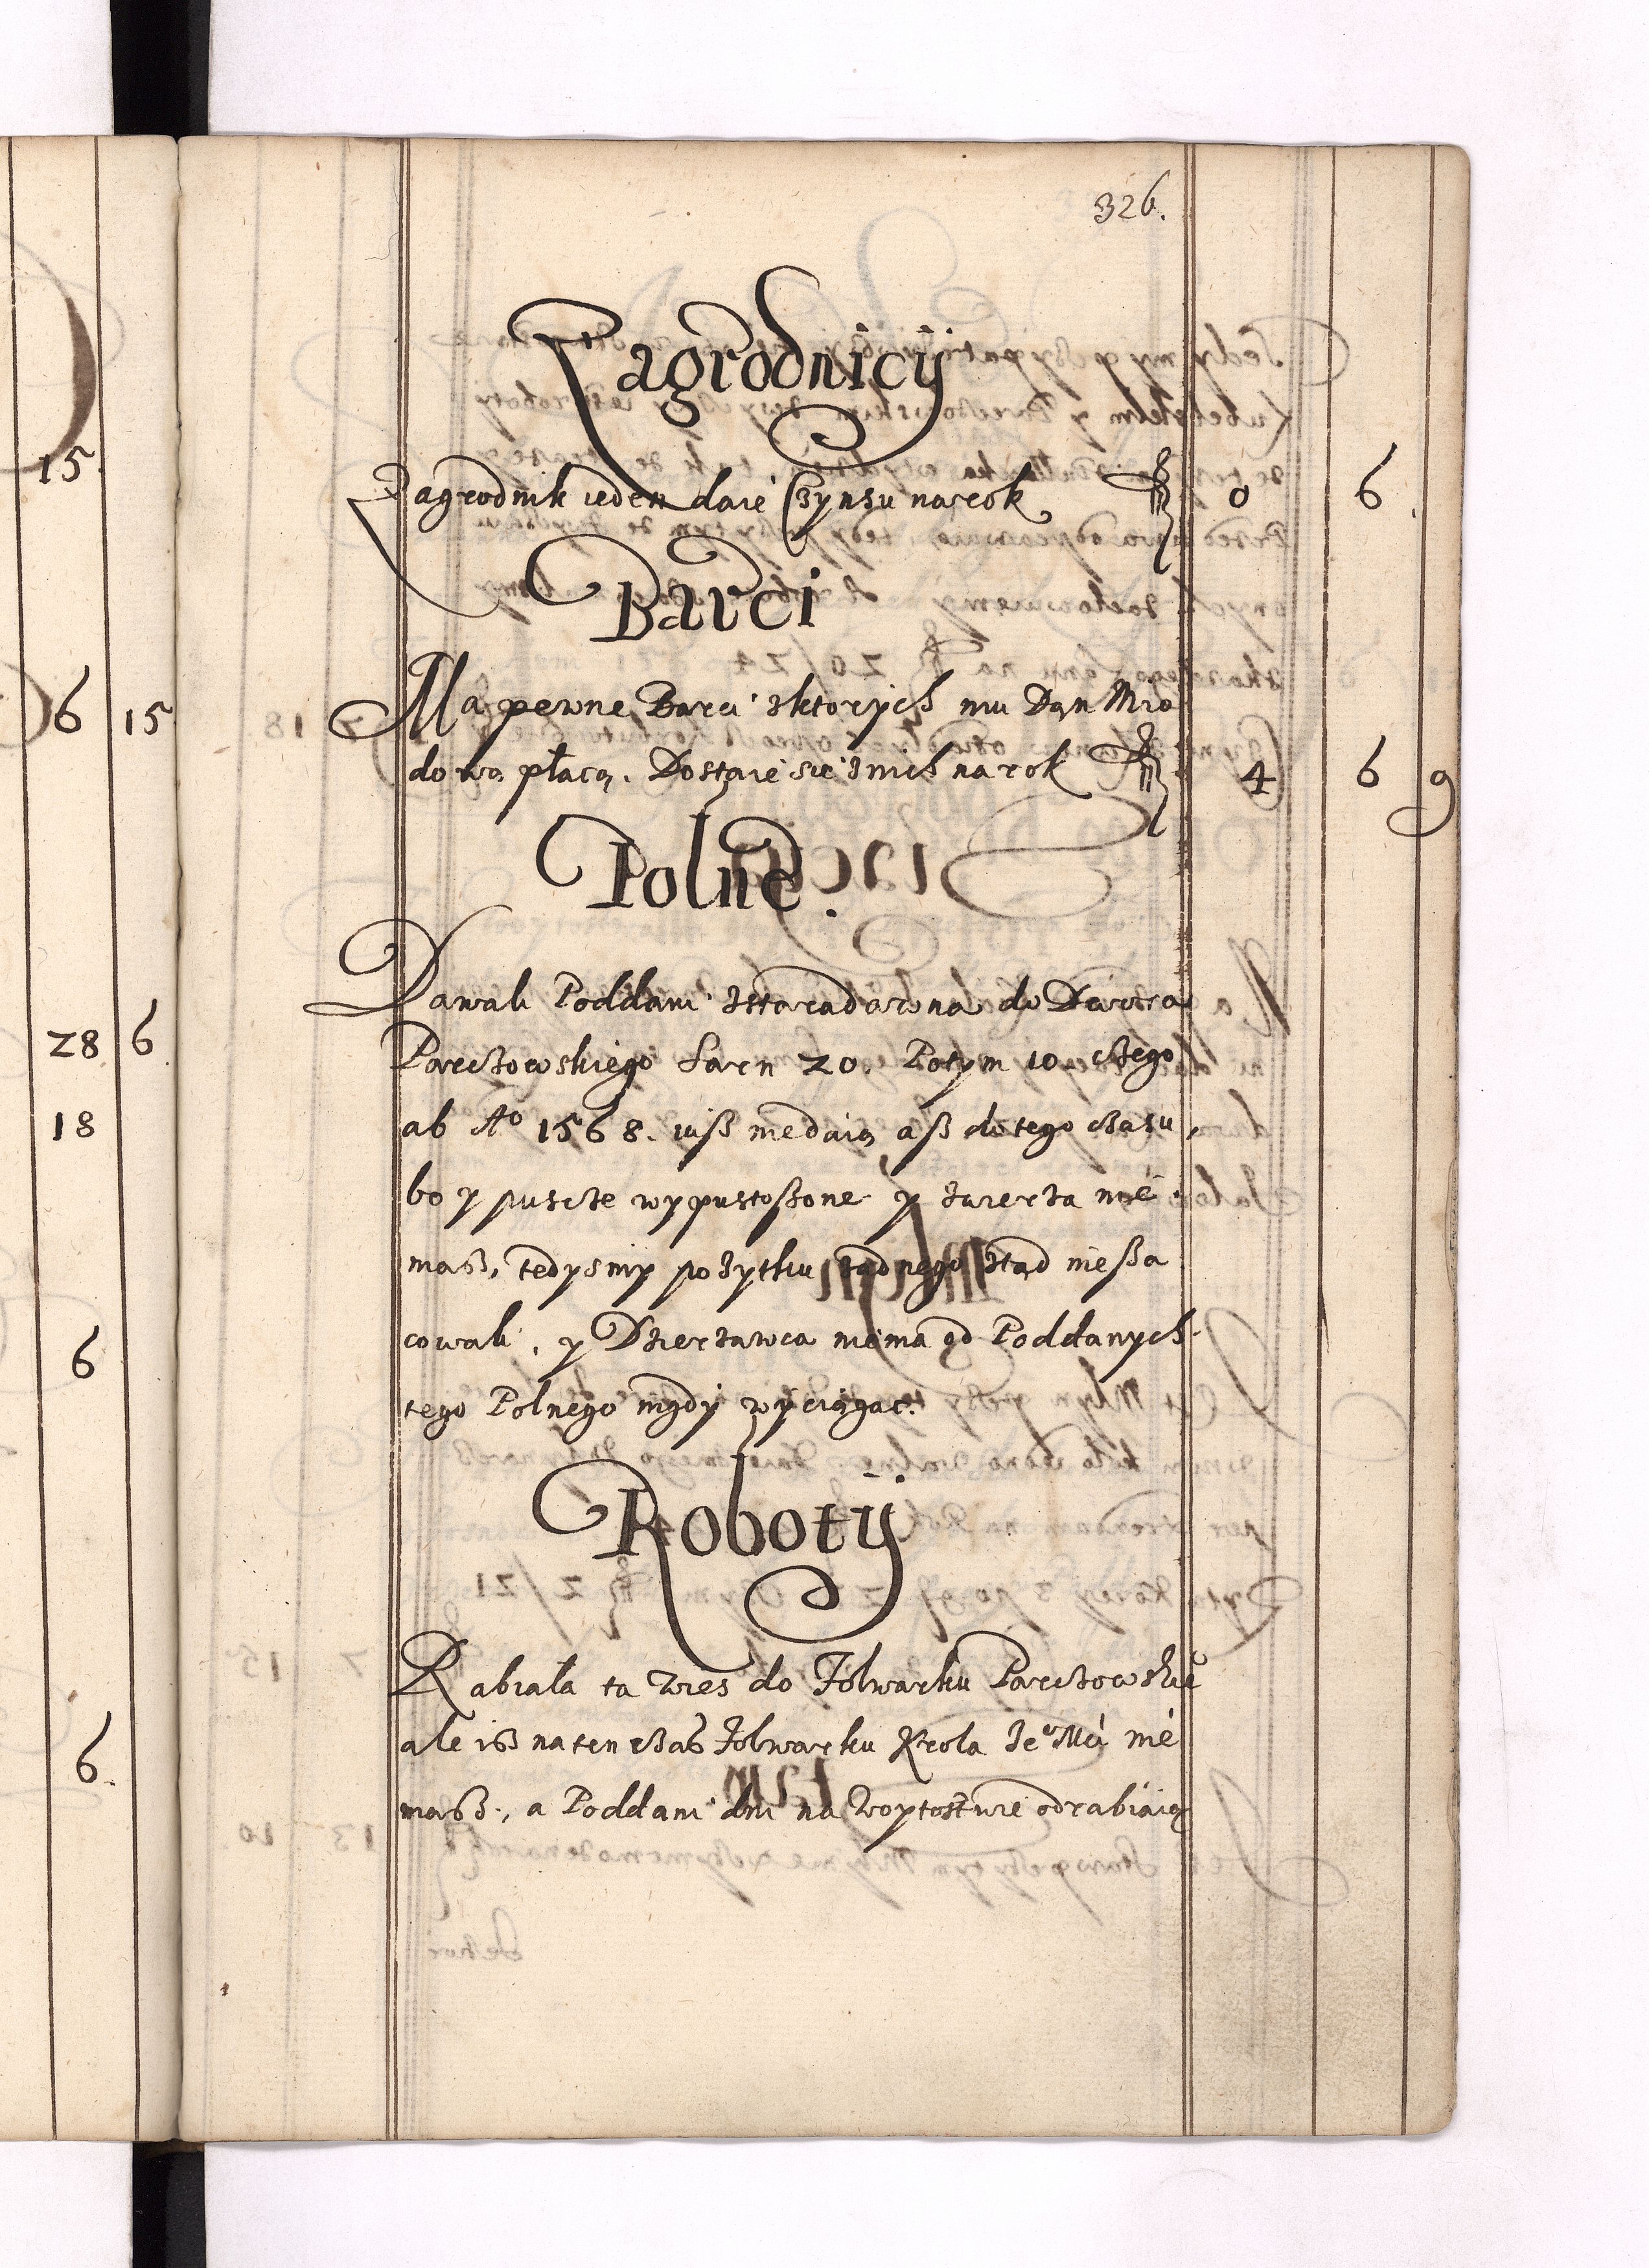 326.
Zagrodnicÿ
Zagrodnik ieden daie Czynsu na rok fl 0 6.
Barci
Ma pewne Barci z ktorych mu Dań Mio
dową płacą. Dostaie sie z nich na rok fl 4 6 9
Polne.
Dawali Poddani z staradawna do Dwora
Parczowskiego Sarn 20. Potym 10 czego
ab Ao 1568. iuß nie daią aß do tego czasu,
bo y puscze wypustoßone y zwierza nie
maß, tedysmy pozytku żadnego ztąd nie ßa
cowali, y Dzierzawca nie ma od Poddanych
tego Polnego nigdy wyciągac.
Robotÿ
Rabiała ta Wies do Folwarku Parczowskie
ale iß na ten czas Folwarku Krola Je° Mci nie
maß, a Poddani dni na Woytostwie odrabiaią
15
6 15
28 6
18
6
6.